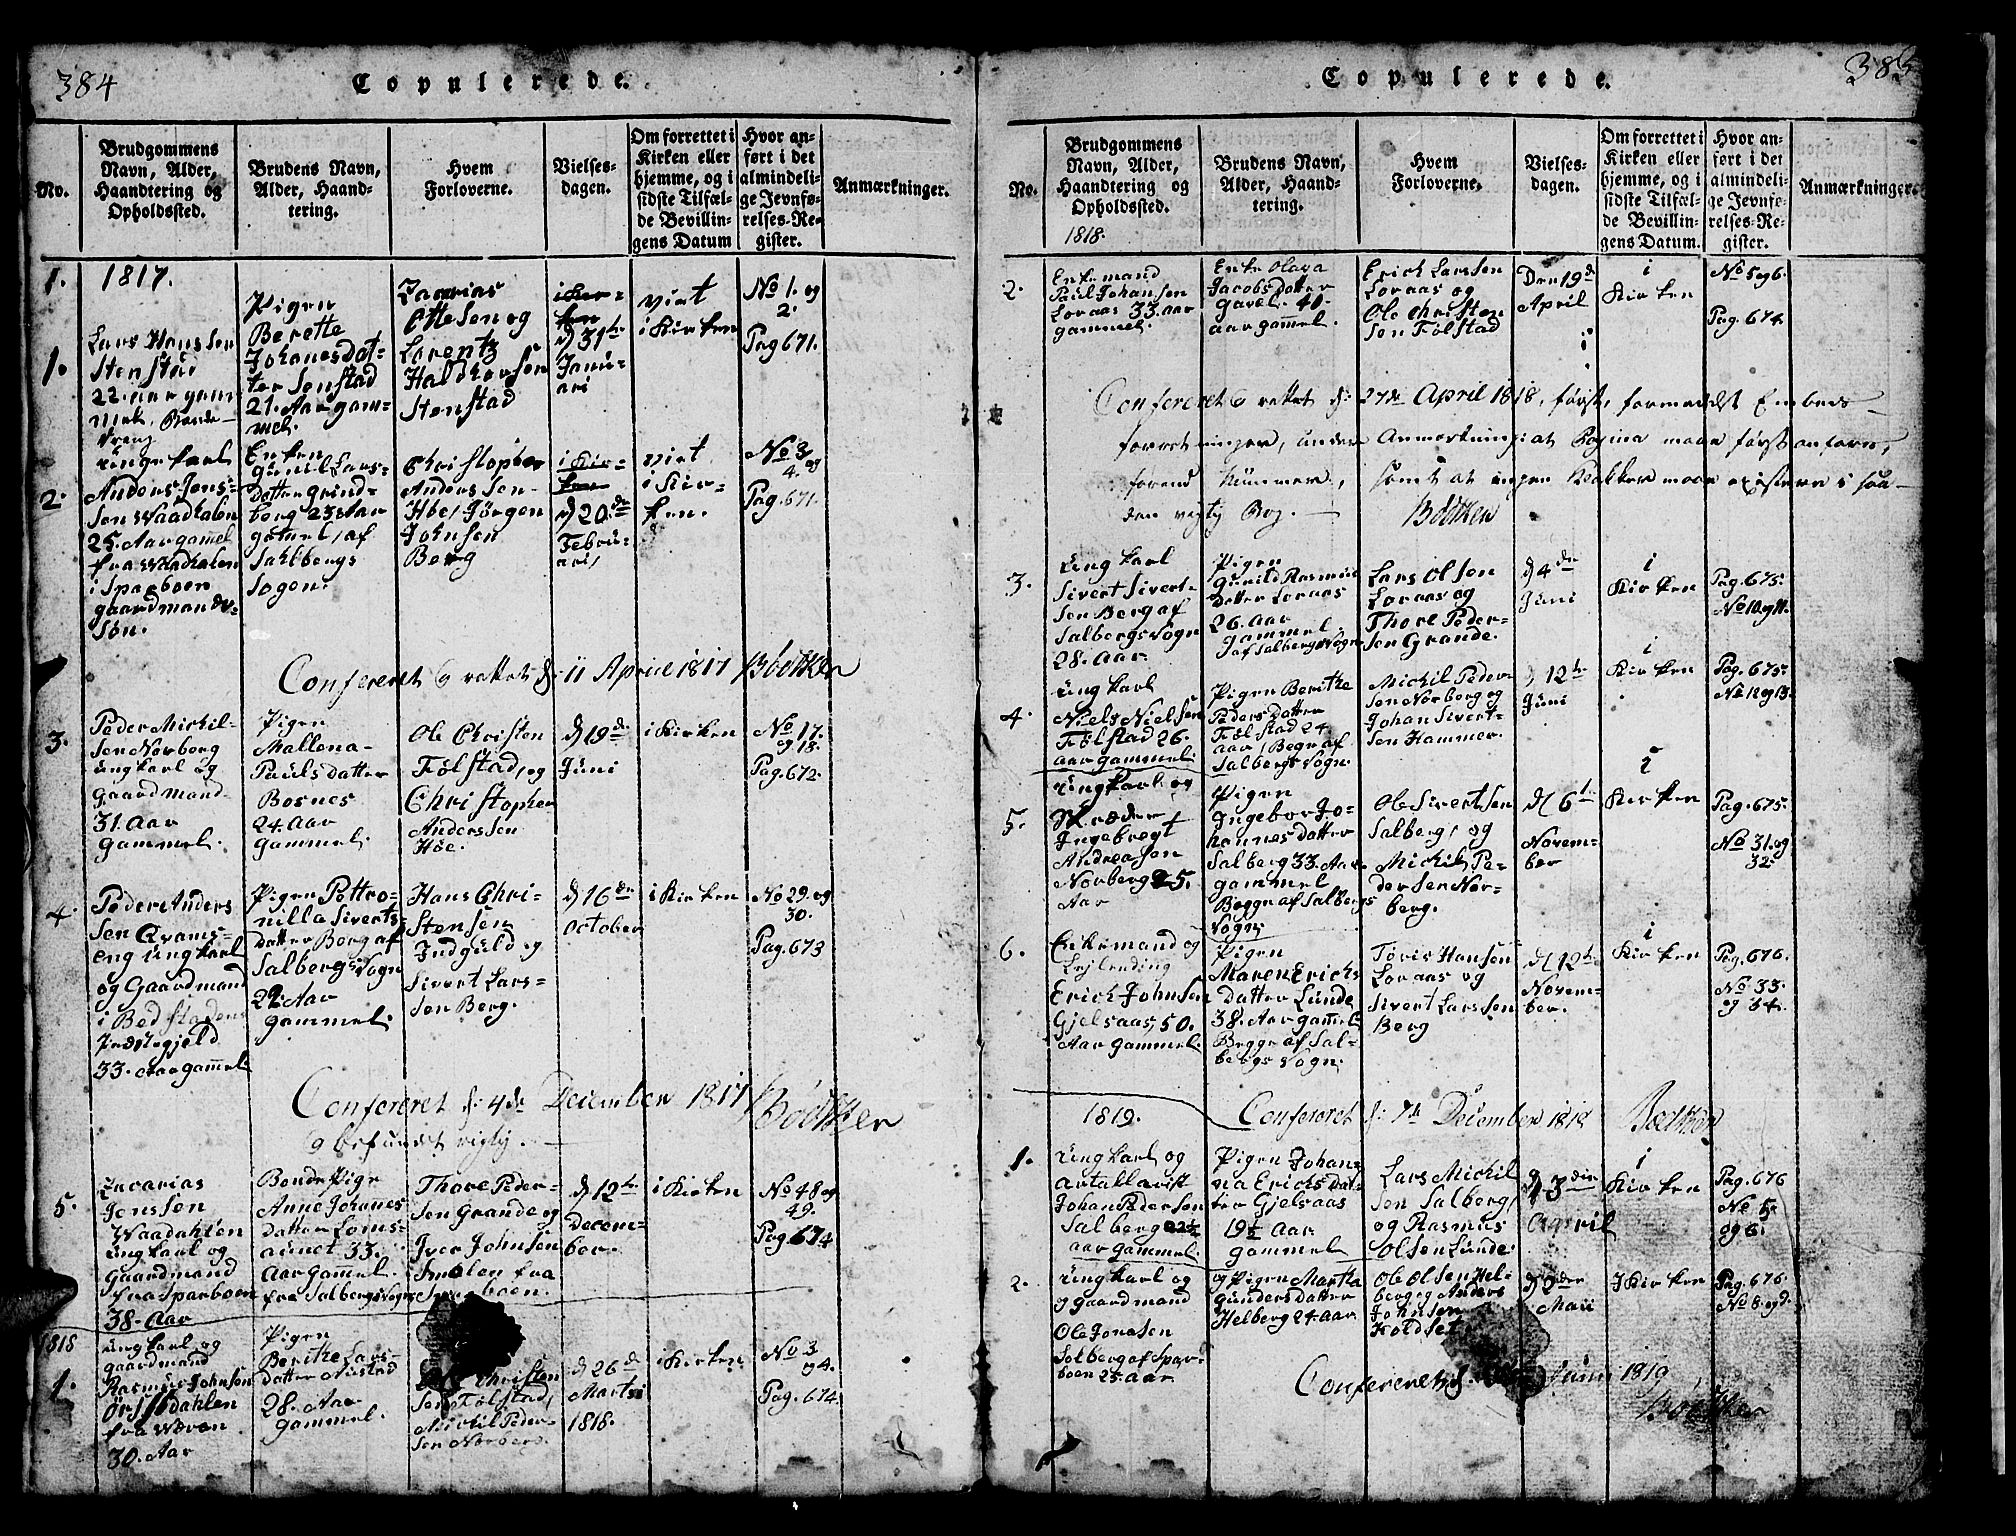 384
Copulerede.
No.
Brudgommens
Navn, Alder,
Haandtering og
Opholdssted.
Brudens Navn,
Alder, Haand-
tering.
Hvem
Forloverne.
Vielses-
dagen.
Om forrettet i
Kirken eller
hjemme, og i
sidste Tilfæl-
de Bevillin-
gens Datum
Hvor an-
ført i det
almindeli-
ge Jevnfø-
relses-Re-
gister.
Anmærkninger.
1.
1817.
1.
Lars Hanssen
Stenstad
22. aar gam
mel, Bonde-
dreng
Pigen
Berette
Johanesdat-
ter Senstad
21. Aar gam-
mel.
Zacarias
Ottesen og
Lorentz
Haldhorsen
Stenstad
i Kir-
ken
d 31te
Janu-
ari
viet
i Kirken
No 1. og
2.
Pag 671.
2.
ungekarl
Anders Jens-
Sen Waadhalen
25. Aar gamel
fra Waadhalen
i Sparboen
gaardmands-
søn.
Enken
Gunil Lars-
Datter Grind-
berg 23 Aar
gamel, af
Sahlbergs
Sogen.
Christopher
Anders Sen-
Høe, Jørgen
Johnsen
Berg
i Kir-
ken
d 20de
Febru-
ari,
viet
i Kir-
ken.
No 3
4. og
Pag. 671.
Confereret og rettet d: 11 April 1817 Bødtker
3.
Peder Michil-
Sen Norberg
ungkarl og
gaardmand
31. Aar
Gammel.
Pigen
Mallena-
Paulsdatter
Bosnes
24. Aar
Gammel.
Ole Christen
Følstad, og
Christopher
Anderssen
Høe.
d 19de
Juni
i Kirken
No 17.
og 18.
Pag. 672.
4.
Peder Anders
Sen Qvams-
eng ungkarl
og Gaardmand
i Bedstadens
Præstegjeld
33. Aar gammel
Pigen Pettro-
nilla Siverts-
datter Berg af
Salbergs Sogn
22. Aar
gammel.
Hans Chri-
Stensen
Indguld og
Sivert Lars-
Sen Berg.
d 16de
October
i Kirken
No 29. og
30.
Pag. 673
Confereret d: 4de December 1817 Bødtker
og befundet rigtig.
5.
Zacarias
Jonssen
Waadahlen
ungkarl og
Gaardmand
fra Sparboen
38. Aar
Bonde Pige
Anne Johanes
datter Loms-
aunet 33.
Aar Gammel.
fra Salbergs Sogn
Thore Peder-
Sen Grande og
Iver Johnsen
Smolen fra
Sparboen.
d 12te
Decem-
ber.
i Kirken
No 48 og
49.
Pag. 674
1818
1.
ungkarl og
gaardmand
Rasmus Johnsen
Ørsjødahlen
fra Wæren
30. Aar
Pigen
Berithe Lars-
datter Austad
28. Aar
Gammel.
Christen
Sen Følstad,
Michil Peder-
Sen Norberg.
d 26de
Martsi
1818.
i Kirken
No 3
og 4.
Pag. 674.
385
Copulerede.
No.
Brudgommens
Navn, Alder,
Haandtering og
Opholdssted.
1818.
Brudens Navn,
Alder, Haand-
tering.
Hvem
Forloverne.
Vielses-
dagen.
Om forrettet i
Kirken eller
hjemme, og i
sidste Tilfæl-
de Bevillin-
gens Datum.
Hvor an-
ført i det
almindeli-
ge Jevnfø-
relses-Re-
gister.
Anmærkninger.
2.
Enkemand
Paul Johansen
Loraas 33. aar
gammel.
Enke Olava
Jacobsdatter
Gavel. 40.
aar gammel.
Erich Larssen
Loraas og
Ole Christen
Sen Følstad
Den 19de
April
i
Kirken
No 5 og 6.
Pag. 674
Confereret og rettet d: 27de April 1818, først, formeedst Embeds-
forretninger, under Anmerkning: at Pagina maae først anføres,
forend Nummer, samt at ingen Klakker maae existere i saa-
dan vigtig Bog. Bødtker
3.
ungkarl
Sivert Sivert-
Sen Berg af
Salbergs Sogn
28. Aar
Pigen
Gurild Rasmus
Datter Loraas
26. Aar
Gammel
af Salbergs Sogn
Lars Olsen
Loraas og
Thore Peder-
Sen Grande.
d 4de
Juni
i
Kirken
Pag. 675.
No 10 og 11.
4.
ungkarl
Niels Nielsen
Følstad 26.
aar gammel
Pigen Berithe
Pedersdatter
Følstad 24
aar, Begge af
Salbergs Sogn.
Michil Peder-
Sen Norberg og
Johan Sivert-
Sen Hammer.
d 12te
Juni
i
Kirken
Pag. 675.
No. 12 og 13.
5.
ungkarl og
Skræder
Ingebregt
Andreasen
Norberg 25.
Aar
Pigen
Ingebor Jo-
hannesdatter
Salberg 33. Aar
gammel
Begge af Salbergs
Sogn.
Ole Sivertsen
Salberg, og
Michil, Pe-
dersen Nor-
berg.
d 6te
Novem-
ber
i
Kirken
Pag. 675.
No 31. og
32.
6.
Enkemand og
Lejlending
Erich Johnsen
Gjelsaas, 50.
Aar Gammel.
Pigen
Maren Erichs
datter Lunde
38. Aar gammel
Begge af Sal-
bergs Sogn.
Toris Hansen
Loraas og
Sivert Larssen
Berg
d 12te
Novem-
ber.
i
Kirken
Pag. 676.
No 33.
og 34.
1819.
Confereret d: 7de December 1818 Bødtker
1.
ungkarl og
artallerist
Johan Pedersen
Salberg 22½
aar gammel.
Pigen Johan-
na Erichsdat-
ter Gjelsaas
19½ Aar
gammel
Lars Michil
Sen Salberg,
og Rasmus
Olsen Lunde.
d 13den
April
i
Kirken
Pag. 676
No 5.
og 6.
2.
ungkarl og
og gaardmand
Ole Jonasen
Solberg af Spar-
boen 25. aar.
og Pigen Martha
Gundersdatter
Helberg 24. aar
Ole Olsen Hel-
berg og Anders
Johnsen
Koldset
d 2den
Maii
I Kirken
Pag. 676.
No 8. og 9.
Confereret d. Juni 1819
Bødtker